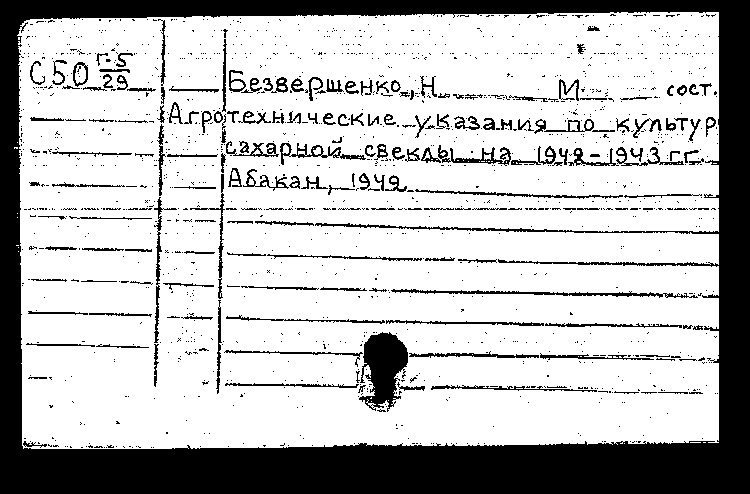 С50 Г-5/29
Безвершенко, Н. М. сост.
Агротехнические указания по культур
сахарной свеклы на 1942-1943 гг.
Абакан, 1942